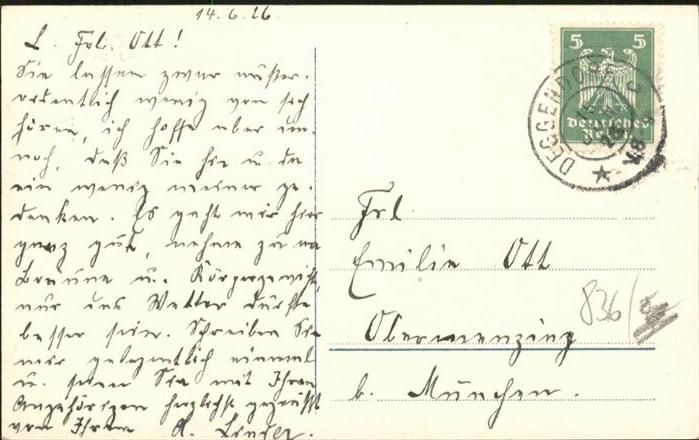 14.6.26.
L. Frl. Ott!
Sie lassen zwar außer-
ordentlich wenig von sich
hören, ich hoffe aber den-
noch, daß Sie hie u. da
ein wenig meiner ge-
denken. Es geht mir hier
ganz gut, nehme zu an
Bräune u. Körpergewicht,
nur das Wetter dürfte
besser sein. Schreiben Sie
mir gelegentlich einmal
u. seien Sie mit Ihren
Angehörigen herzlichst gegrüßt
von Ihrem A.
5 5
Deutsches
Reich
DEGGENDORF
Frl.
Emilie Ott
Obermenzing
b. München.
836/